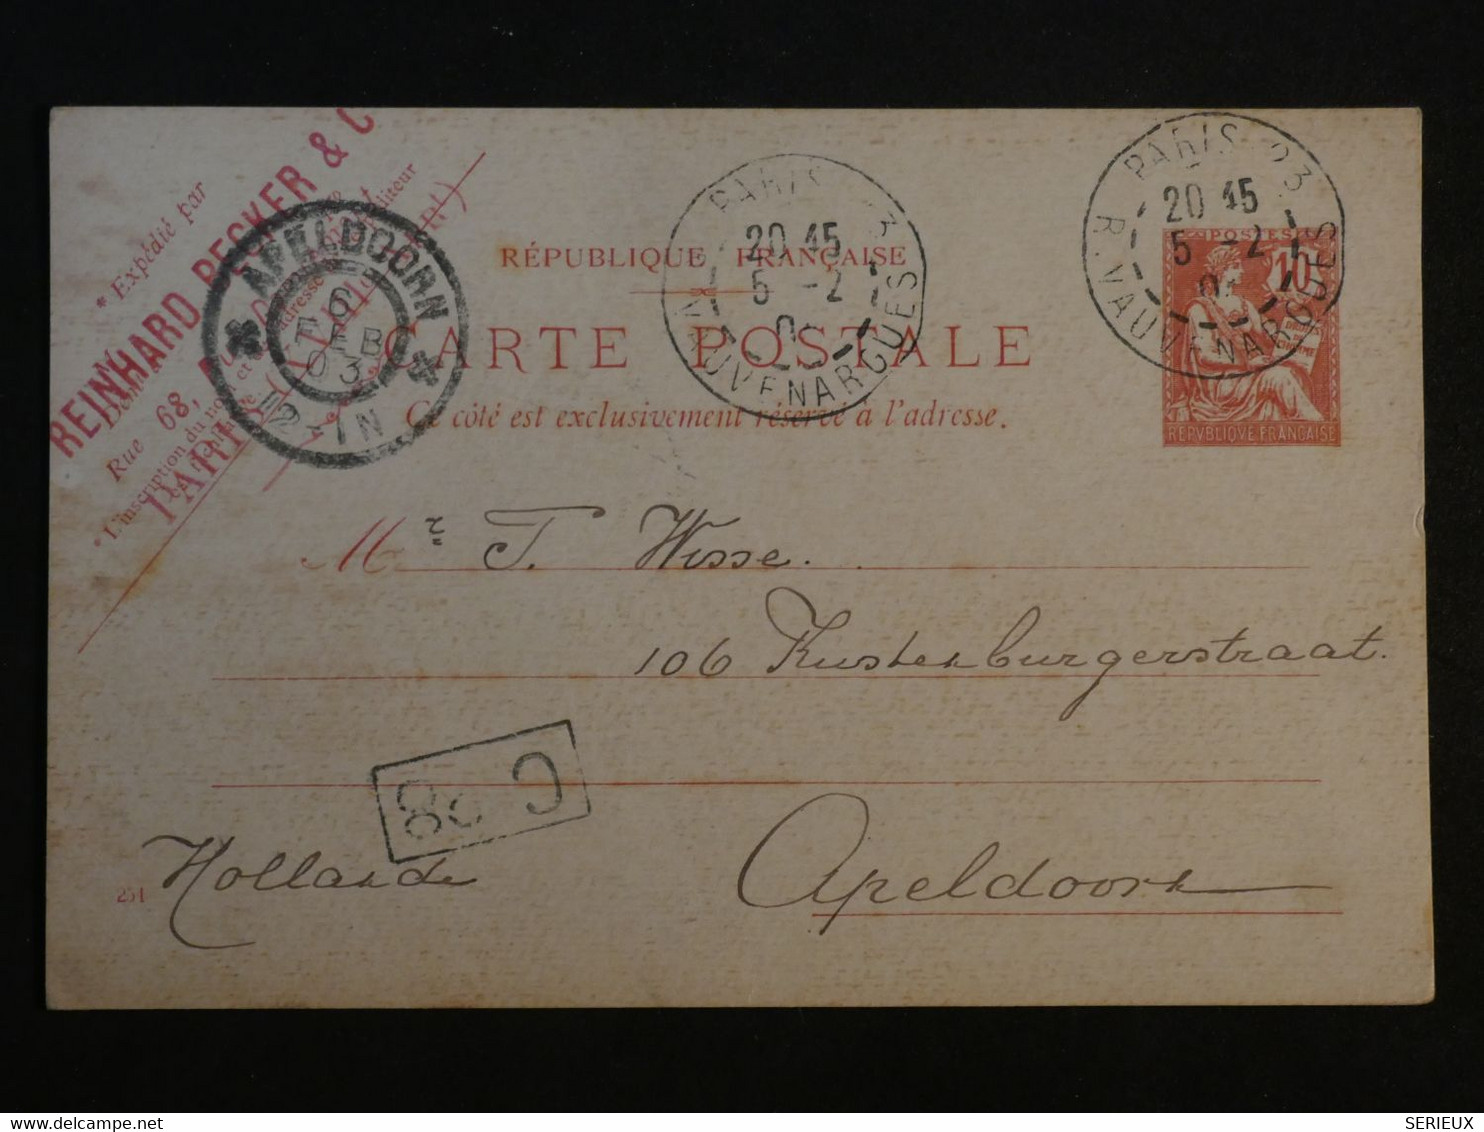 * Expédié par
REINHARD BECKER & C
Rue 68,
* L'inscription du
APELDOORN
6
FEB
03
12-1N
PARIS 3
20 45
5 -2
03
R. VAUVENARGUES
PARIS 23
20 45
5 -2
R. VAUVENARGUES
POSTES
10
REPVBLIQVE FRANÇAISE
RÉPUBLIQUE FRANÇAISE
CARTE POSTALE
Ce côté est exclusivement réservé à l'adresse.
M r T. Wisse.
106 Kustenburgerstraat.
C 38
Hollande Apeldoorn
251
SERIEUX